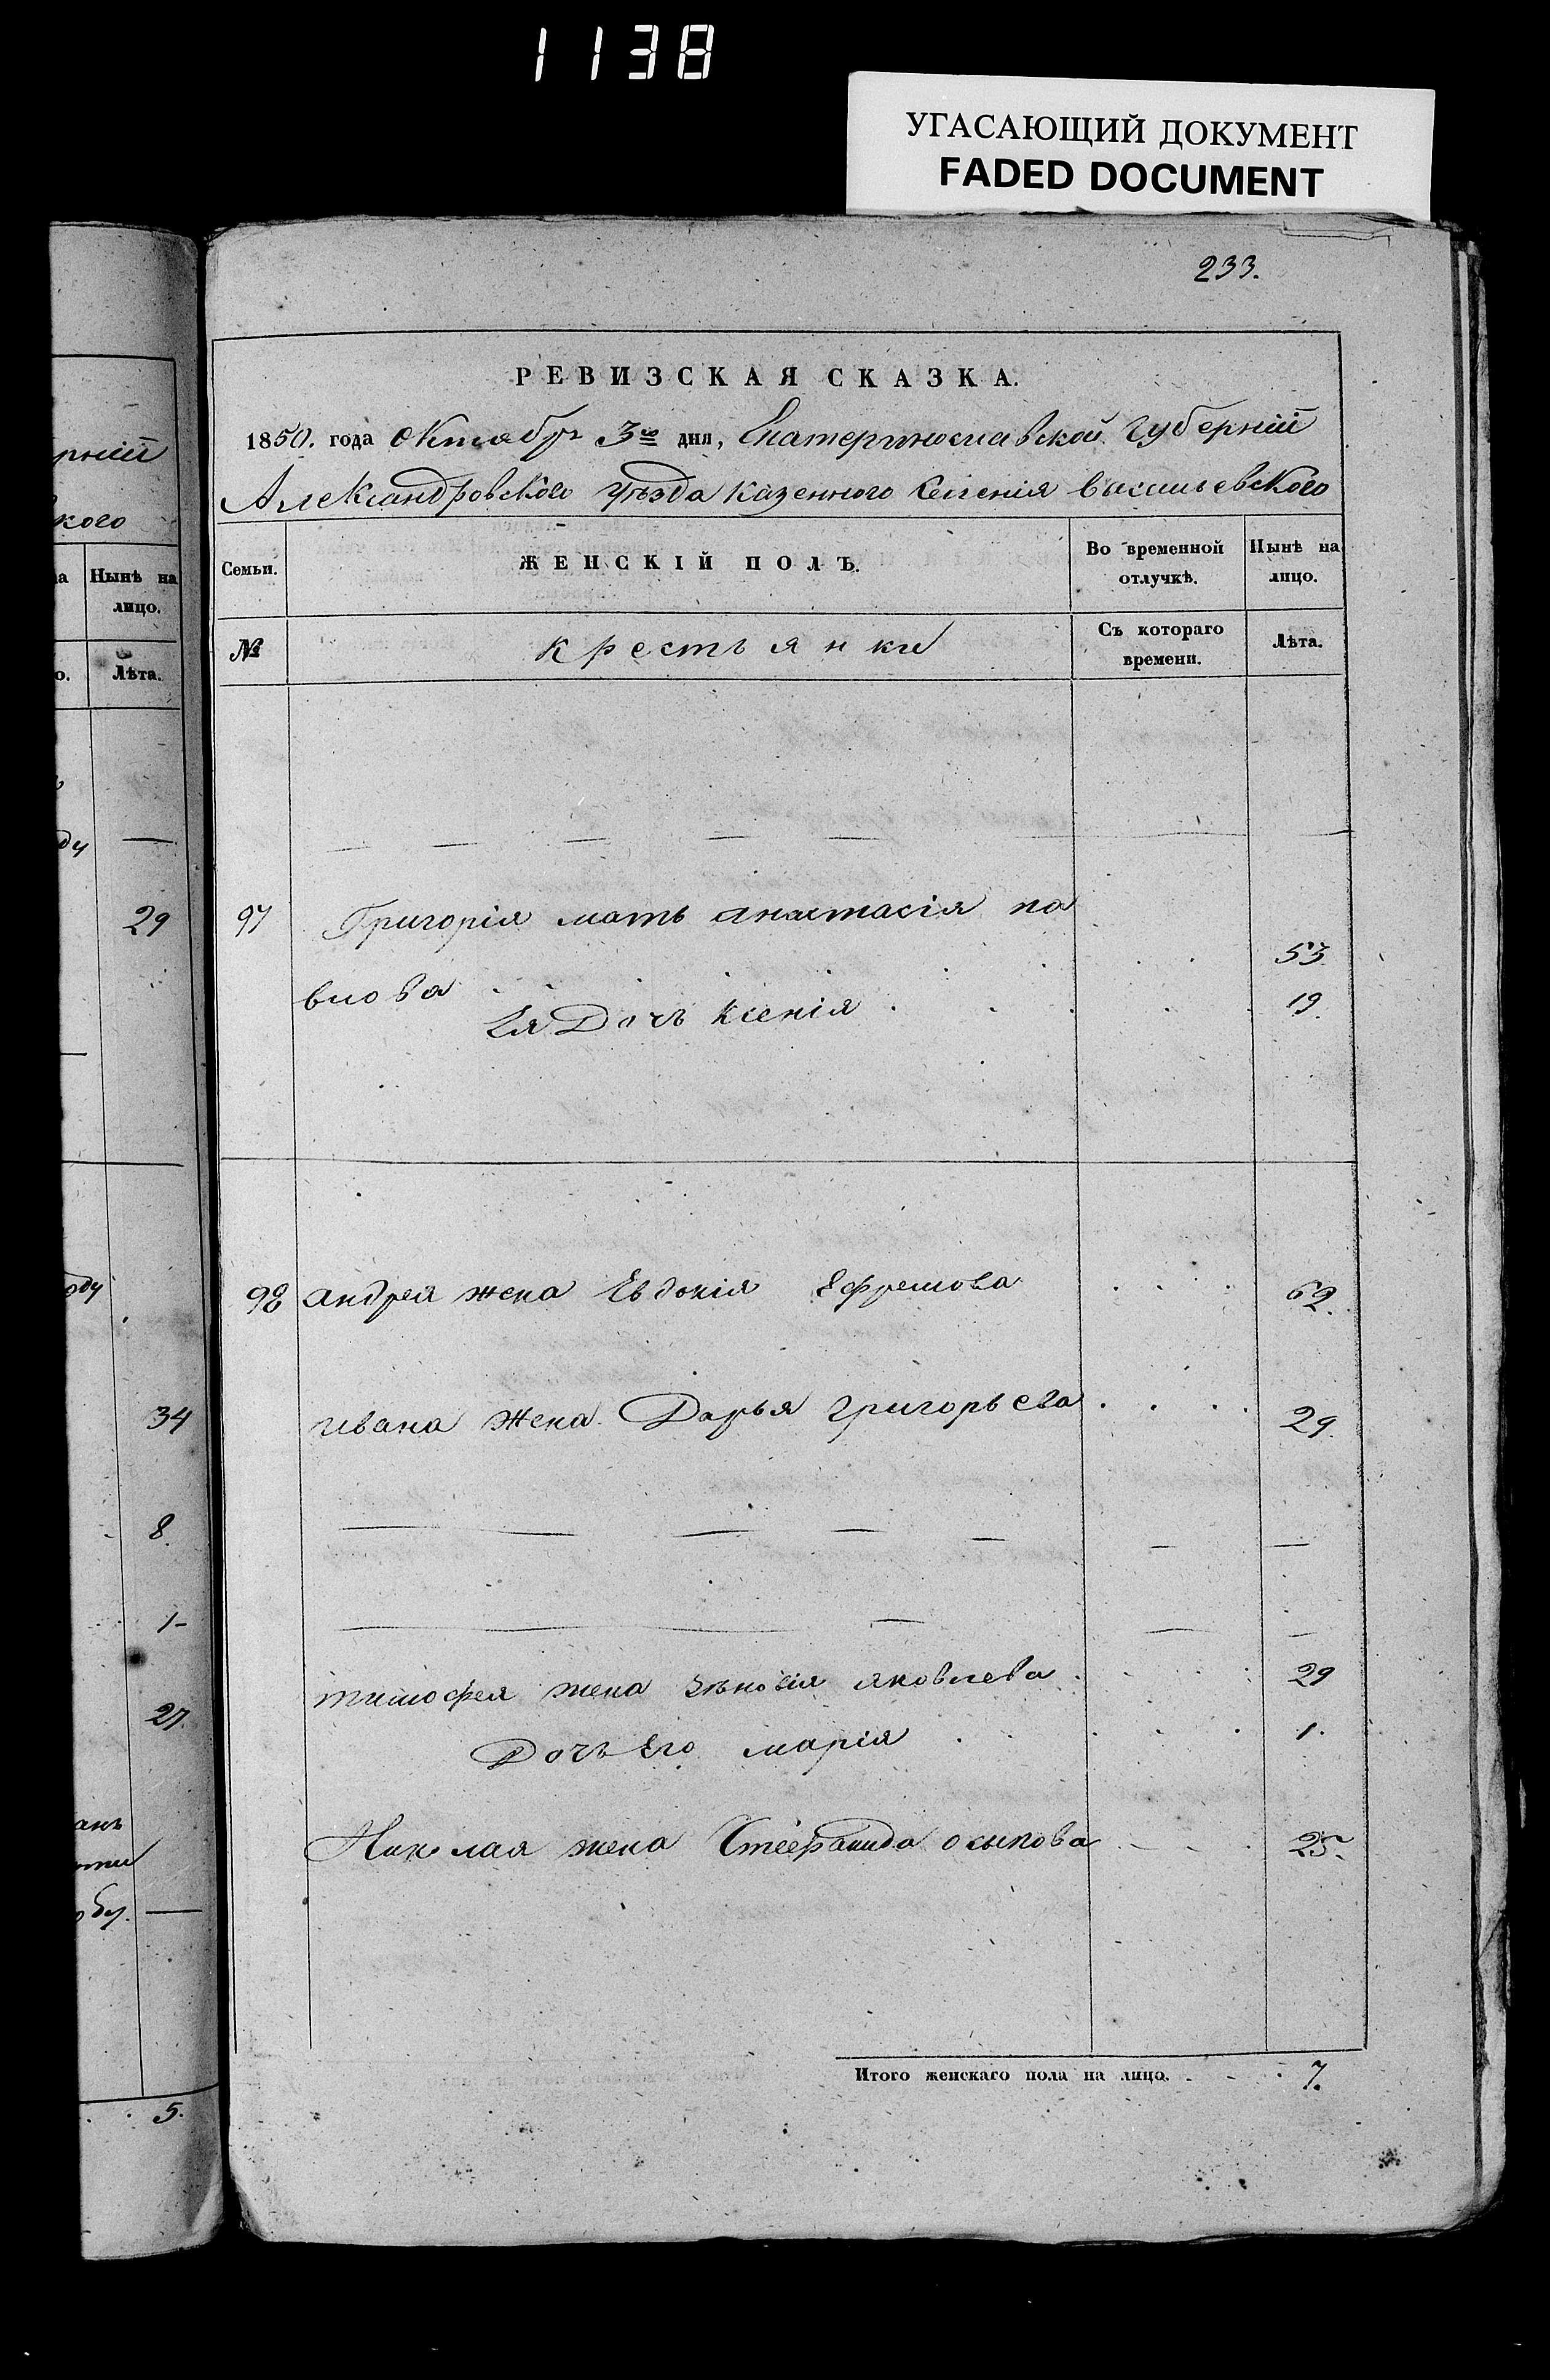 1138
УГАСАЮЩИЙ ДОКУМЕНТ
FADED DOCUMENT
233.
РЕВИЗСКАЯ СКАЗКА.
1850. года октября 3го дня, Екатеринославской губерніи
Александровского уѣзда казенного селенія Васильевского
рніи
кого
Семьи.
ЖЕНСКІЙ ПОЛЪ.
Во временной отлучкѣ.
Нынѣ на лицо.
№
крестьянки
Съ котораго времени.
Лѣта.
на Нынѣ на лицо.
о. Лѣта.
ду —
29
97 Григорія мать анастасія па
влова 53
Ея Дочь Ксенія 19.
оду
98 андрея жена Евдокія Ефремова 62.
34
ивана жена Дарья григорьева 29.
8.
1-
тимофея жена Зѣновія яковлева 29
27.
Дочь Его марія 1.
анъ
Николая жена Стефанида осыпова 25.
Итого женскаго пола на лицо. 7.
5.